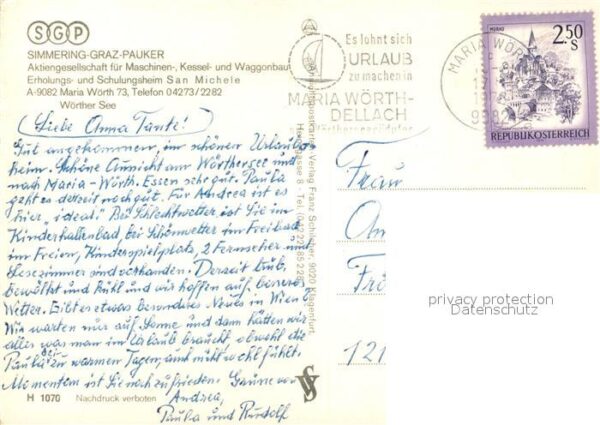 SGP
SIMMERING-GRAZ-PAUKER
Aktiengesellschaft für Maschinen-, Kessel- und Waggonbau
Erholungs- und Schulungsheim San Michele
A-9082 Maria Wörth 73, Telefon 04273/2282
Wörther See
Liebe Anna Tante!
Gut angekommen, im schönen Urlaubs
heim. Schöne Aussicht am Wörthersee und
nach Maria-Wörth. Essen sehr gut. Paula
geht es derzeit noch gut. Für Andrea ist es
hier "ideal". Bei Schlechtwetter ist Sie im
Kinderhallenbad, bei Schönwetter im Freibad
im Freien, Kinderspielplatz, 2 Fernseher und
Lesezimmer sind vorhanden. Derzeit trüb,
bewölkt und kühl und wir hoffen auf besseres
Wetter. Gibt es etwas besonderes Neues in Wien?
Wir warten nur auf Sonne und dann hätten wir
alles was man im Urlaub braucht, obwohl die
Paula bei zu warmen Tagen, auch nicht wohl fühlt.
Momentan ist Sie noch zufrieden. Grüsse von
Andrea,
Paula und Rudolf
H 1070 Nachdruck verboten
Franz Schilcher, 9020 Klagenfurt,
Es lohnt sich
URLAUB
zu machen in
MARIA WÖRTH-
DELLACH
MARIA WÖRTH
MURAU
2.50
S
REPUBLIK ÖSTERREICH
Frau
An
Frö
121
privacy protection
Datenschutz